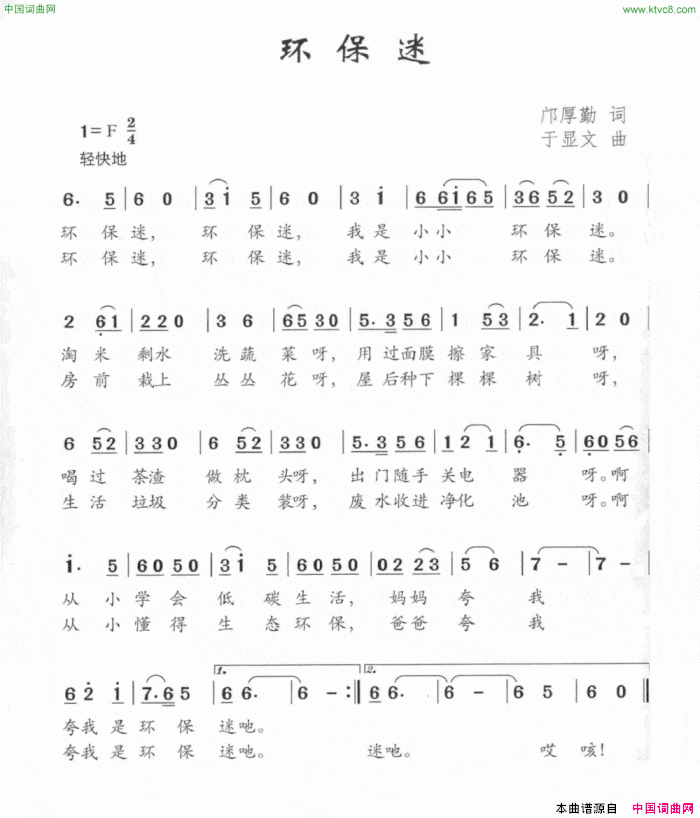 中国词曲网
www.ktvc8.com
环保迷
1=F 2/4
邝厚勤 词
于显文 曲
轻快地
6· 5 | 6 0 | 3 i | 6 0 | 3 i | 6 6i65 | 3652 | 3 0 |
环 保 迷, 环 保 迷, 我是 小小 环 保 迷。
环 保 迷, 环 保 迷, 我是 小小 环 保 迷。
2 61 | 220 | 3 6 | 6530 | 5·356 | 1 53 | 2· 1 | 2 0 |
淘 米 剩水 洗蔬 菜呀, 用过面膜 擦家 具 呀,
房 前 栽上 丛丛 花呀, 屋后种下 棵棵 树 呀,
6 52 | 330 | 6 52 | 330 | 5·356 | 12 1 | 6· 5 | 6056 |
喝过 茶渣 做枕 头呀, 出门随手 关电 器 呀。啊
生活 垃圾 分类 装呀, 废水收进 净化 池 呀。啊
i· 5 | 6050 | 3i 5 | 6050 | 02 23 | 5 6 | 7 - | 7 - |
从 小学会 低 碳生活, 妈妈 夸 我
从 小懂得 生 态环保, 爸爸 夸 我
1.
2.
6 2 i | 7·65 | 6 6· | 6 - :‖ 6 6· | 6 - | 6 5 | 6 0 ‖
夸我是环保 迷吔。
夸我是环保 迷吔。 迷吔。 哎 咳!
本曲谱源自 中国词曲网